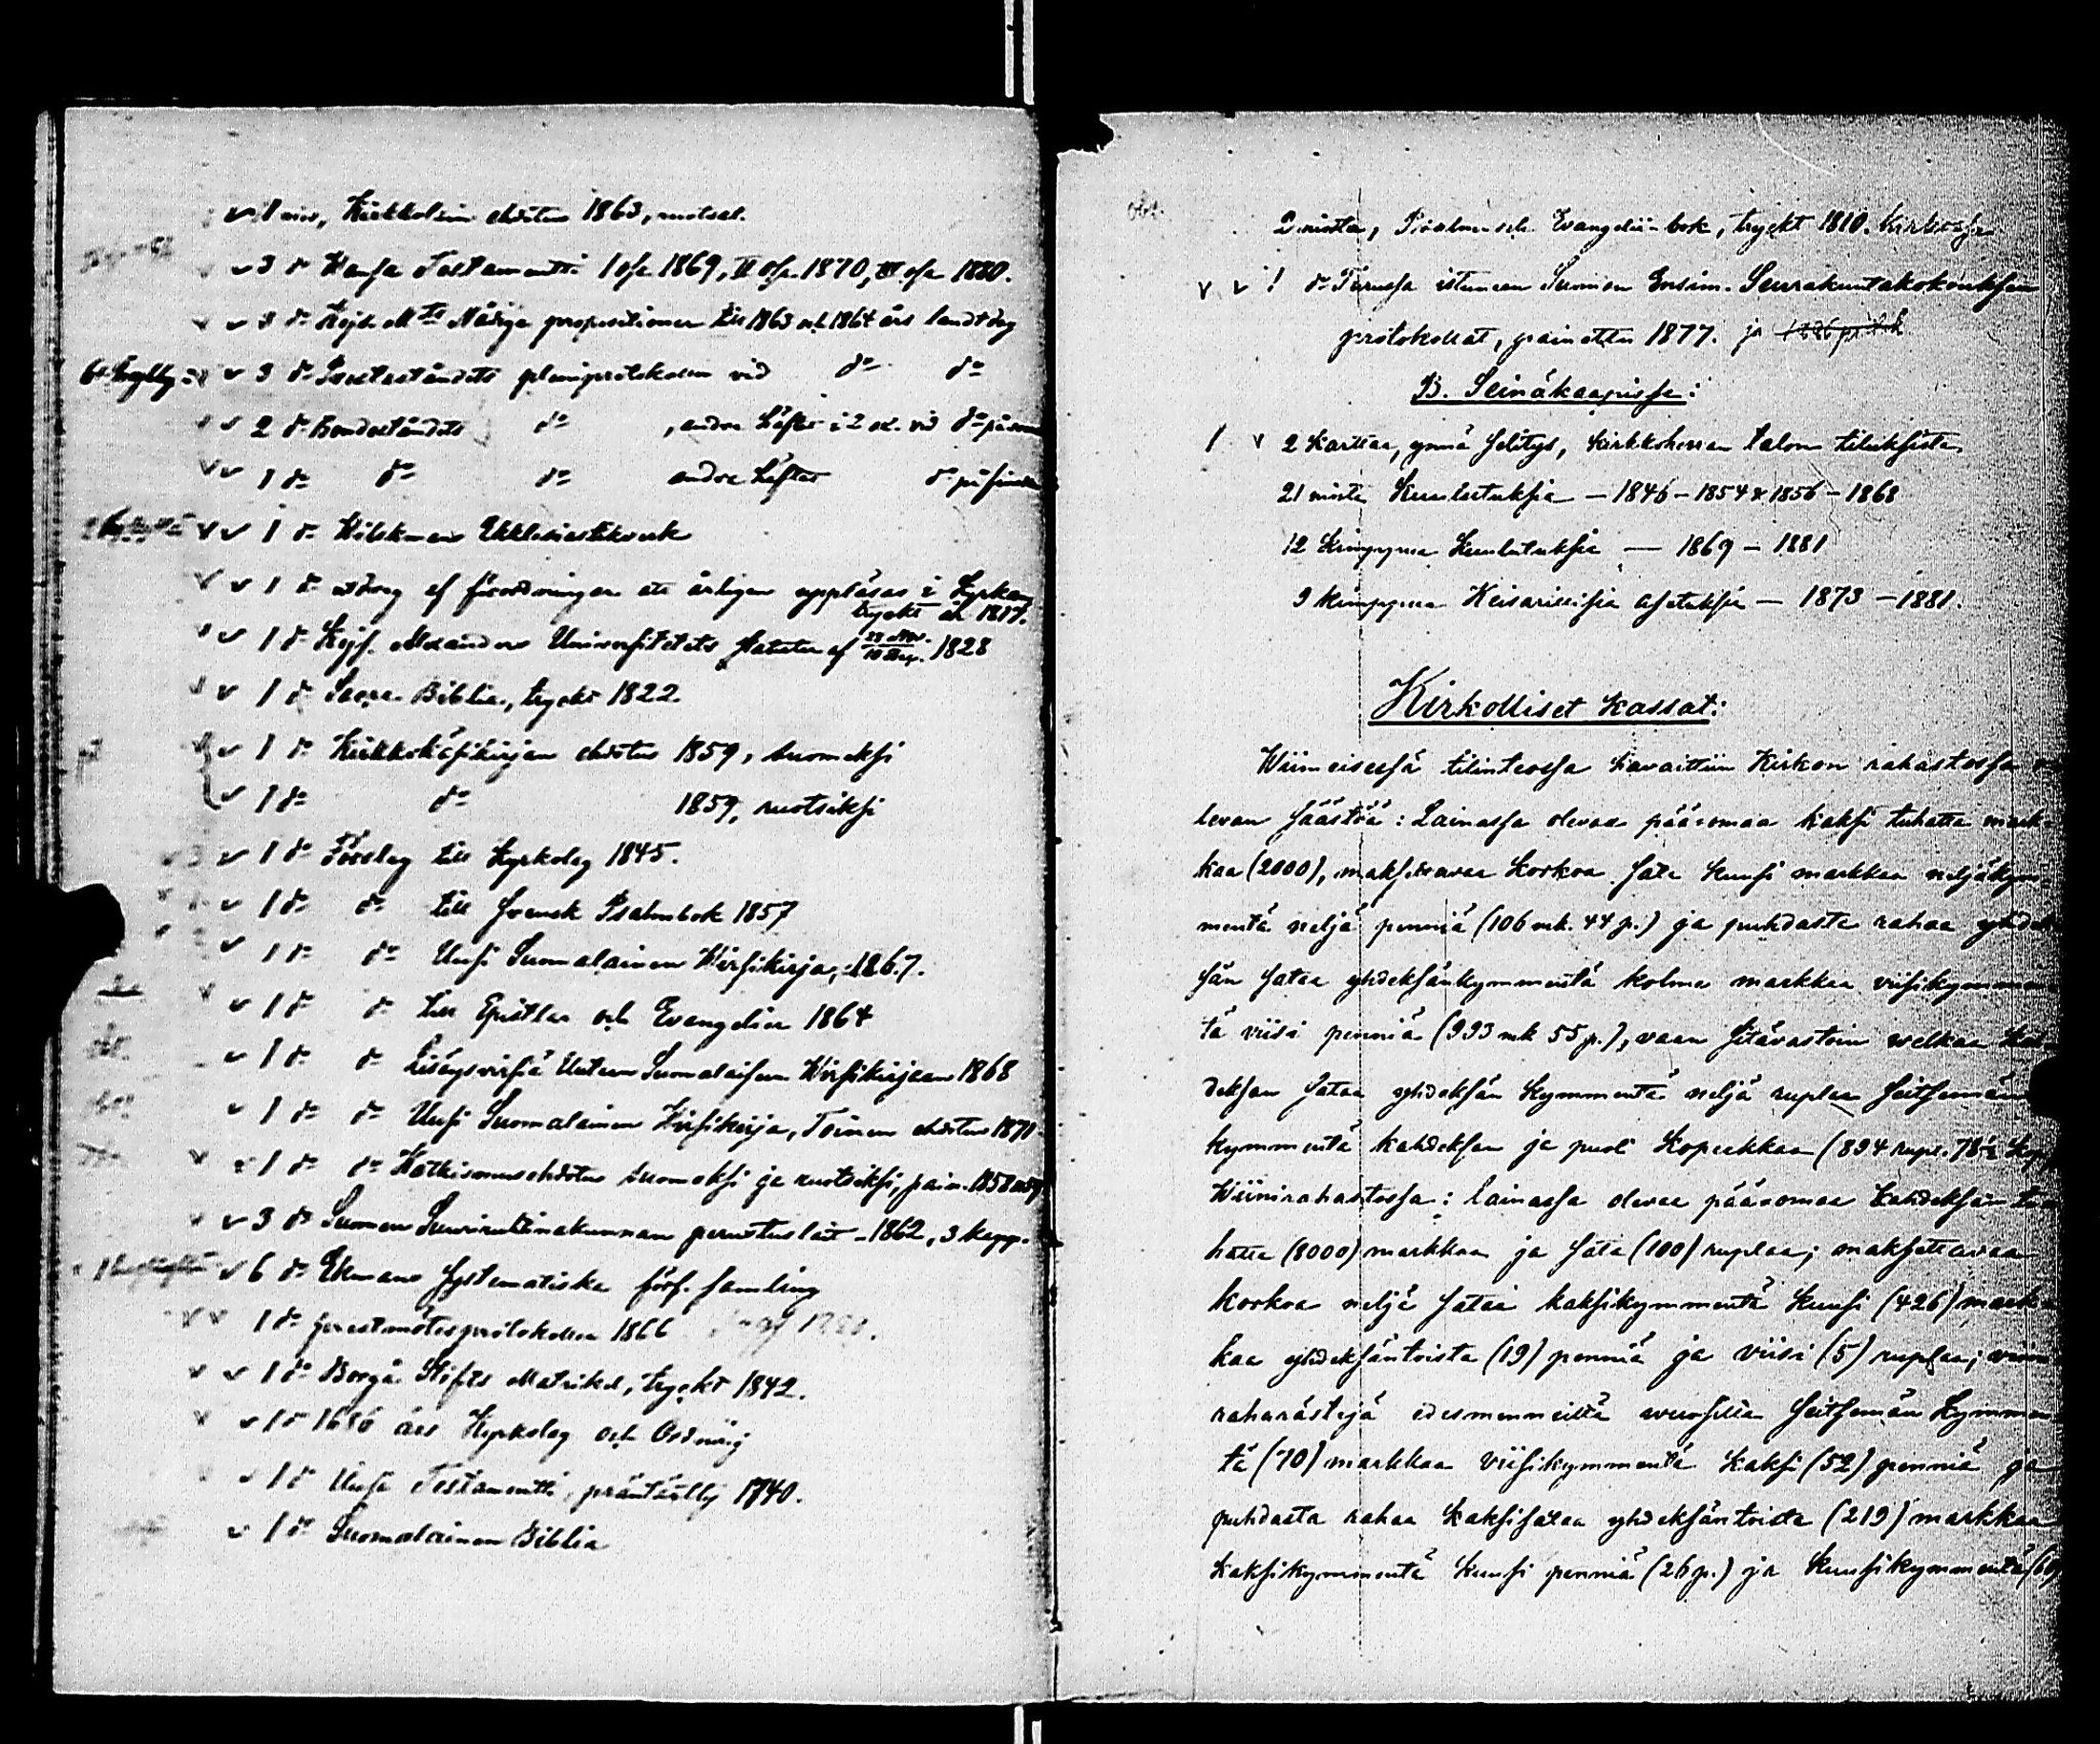 1 nid., Kirkkolain ehdotus 1863, ruotsal.
3 d:o Wanha Testamentti I osa 1869, II osa 1870, III osa 1880.
3 d:o Kejs. M:ts Nådiga propositioner till 1863 och 1864 års landtdag
3 d:o Presteståndets pleniprotokoller vid d:o d:o
2 d:o Bondeståndets d:o, andra häftet i 2 ex. vid d:o på
1 d:o d:o d:o andra häftet d:o på finska
1 d:o Wilskmans Ekklesiastikverk
1 d:o utdrag af förordningar att årligen uppläsas i Kyrkan,
tryckt år 1817.
1 d:o Kejs. Alexanders Universitetets statuter af 1828
1 d:o Sacra Biblia, tryckt 1822.
1 d:o Kirkkokäsikirjan ehdotus 1859, suomeksi
1 d:o d:o 1859, ruotsiksi
1 d:o Förslag till Kyrkolag 1845.
1 d:o d:o till Svensk Psalmbok 1857
1 d:o d:o Uusi Suomalainen Wirsikirja, 1867.
1 d:o d:o till Epistlar och Evangelier 1864
1 d:o d:o Lisäysvirsiä Uuteen Suomalaiseen Wirsikirjaan 1868
1 d:o d:o Uusi Suomalainen Wirsikirja, Toinen ehdotus 1870
1 d:o d:o Katkismusehdotus suomeksi ja ruotsiksi, pain. 1858
3 d:o Suomen Suuriruhtinakunnan perustuslait 1862, 3 kapp.
6 d:o Ekmans Systematiska förf. samling
1 d:o prestmötesprotokoller 1866
1 d:o Borgå Stifts Matrikel, tryckt 1842.
1 d:o 1686 års Kyrkolag och Ordning
1 d:o Uusi Testamentti, präntätty 1740.
1 d:o Suomalainen Biblia
2 nidosta, Psalm och Evangelii-bok, tryckt 1810. Kirkossa
1 d:o Turussa istuneen Suomen Ensim. Seurakuntakokouksen
protokollat, painettu 1877. ja
B. Seinäkaapissa:
2 Karttaa, ynnä selitys, Kirkkoherran talon tiluksista,
21 nidosta Kuulutuksia — 1846 – 1854 & 1856 – 1868
12 Kimppua Kuulutuksia — 1869 – 1881
9 kimppua Keisarillisia asetuksia — 1873 – 1881.
Kirkolliset kassat:
Wiimeisessä tilinteossa havaittiin Kirkon rahastossa o
levan säästöä: Lainassa olevaa pääomaa kaksi tuhatta mark-
kaa (2000), maksettavaa korkoa sata kuusi markkaa neljäkym-
mentä neljä penniä (106 mk. 44 p.) ja puhdasta rahaa yhdek-
sän sataa yhdeksänkymmentä kolme markkaa viisikymmen
tä viisi penniä (993 mk 55 p.), vaan sitävastoin welkaa kah
deksan sataa yhdeksän kymmentä neljä ruplaa seitsemän
kymmentä kahdeksan ja puol Kopeekkaa (894 rupl. 78½ Kop.
Wiinirahastossa: lainassa olevaa pääomaa kahdeksan tu
hatta (8000) markkaa ja sata (100) ruplaa; maksettavaa
korkoa neljä sataa kaksikymmentä kuusi (426) mark-
kaa yhdeksäntoista (19) penniä ja viisi (5) ruplaa;
raharästejä edesmenneiltä vuosilta seitsemän kymmen
tä (70) markkaa viisikymmentä kaksi (52) penniä ja
puhdasta rahaa kaksisataa yhdeksäntoista (219) markkaa
kaksikymmentä kuusi penniä (26 p.) ja kuusikymmentä (60)